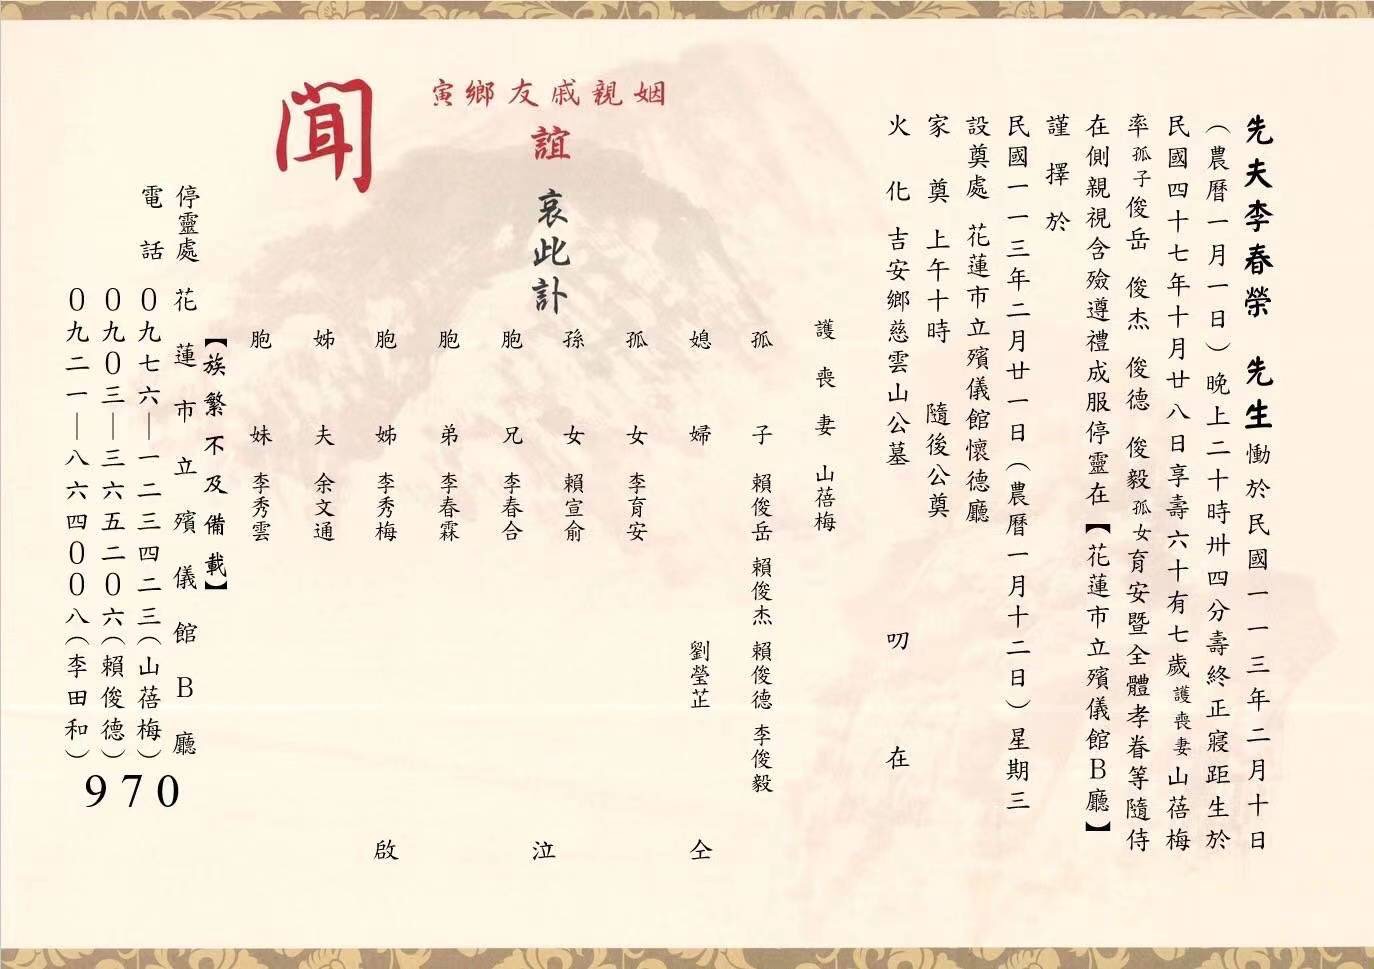 先夫李春榮 先生慟於民國一一三年二月十日
(農曆一月一日)晚上二十時卅四分壽終正寢距生於
民國四十七年十月廿八日享壽六十有七歲護喪妻山蓓梅
率孤子俊岳 俊杰 俊德 俊毅孤女育安暨全體孝眷等隨侍
在側親視含殮遵禮成服停靈在【花蓮市立殯儀館B廳】
謹擇於
民國一一三年二月廿一日(農曆一月十二日)星期三
設奠處 花蓮市立殯儀館懷德廳
家奠 上午十時 隨後公奠
火化 吉安鄉慈雲山公墓 叨在
姻親戚友鄉寅
誼 哀此訃
聞
護喪妻 山蓓梅
孤子 賴俊岳 賴俊杰 賴俊德 李俊毅
媳婦 劉瑩芷
孤女 李育安
孫女 賴宣俞
胞兄 李春合
胞弟 李春霖
胞姊 李秀梅
姊夫 余文通
胞妹 李秀雲
仝泣啟
【族繁不及備載】
停靈處 花蓮市立殯儀館B廳
電話 0九七六—一二三四二三(山蓓梅)
0九0三—三六五二0六(賴俊德)
0九二一—八六四00八(李田和)
970